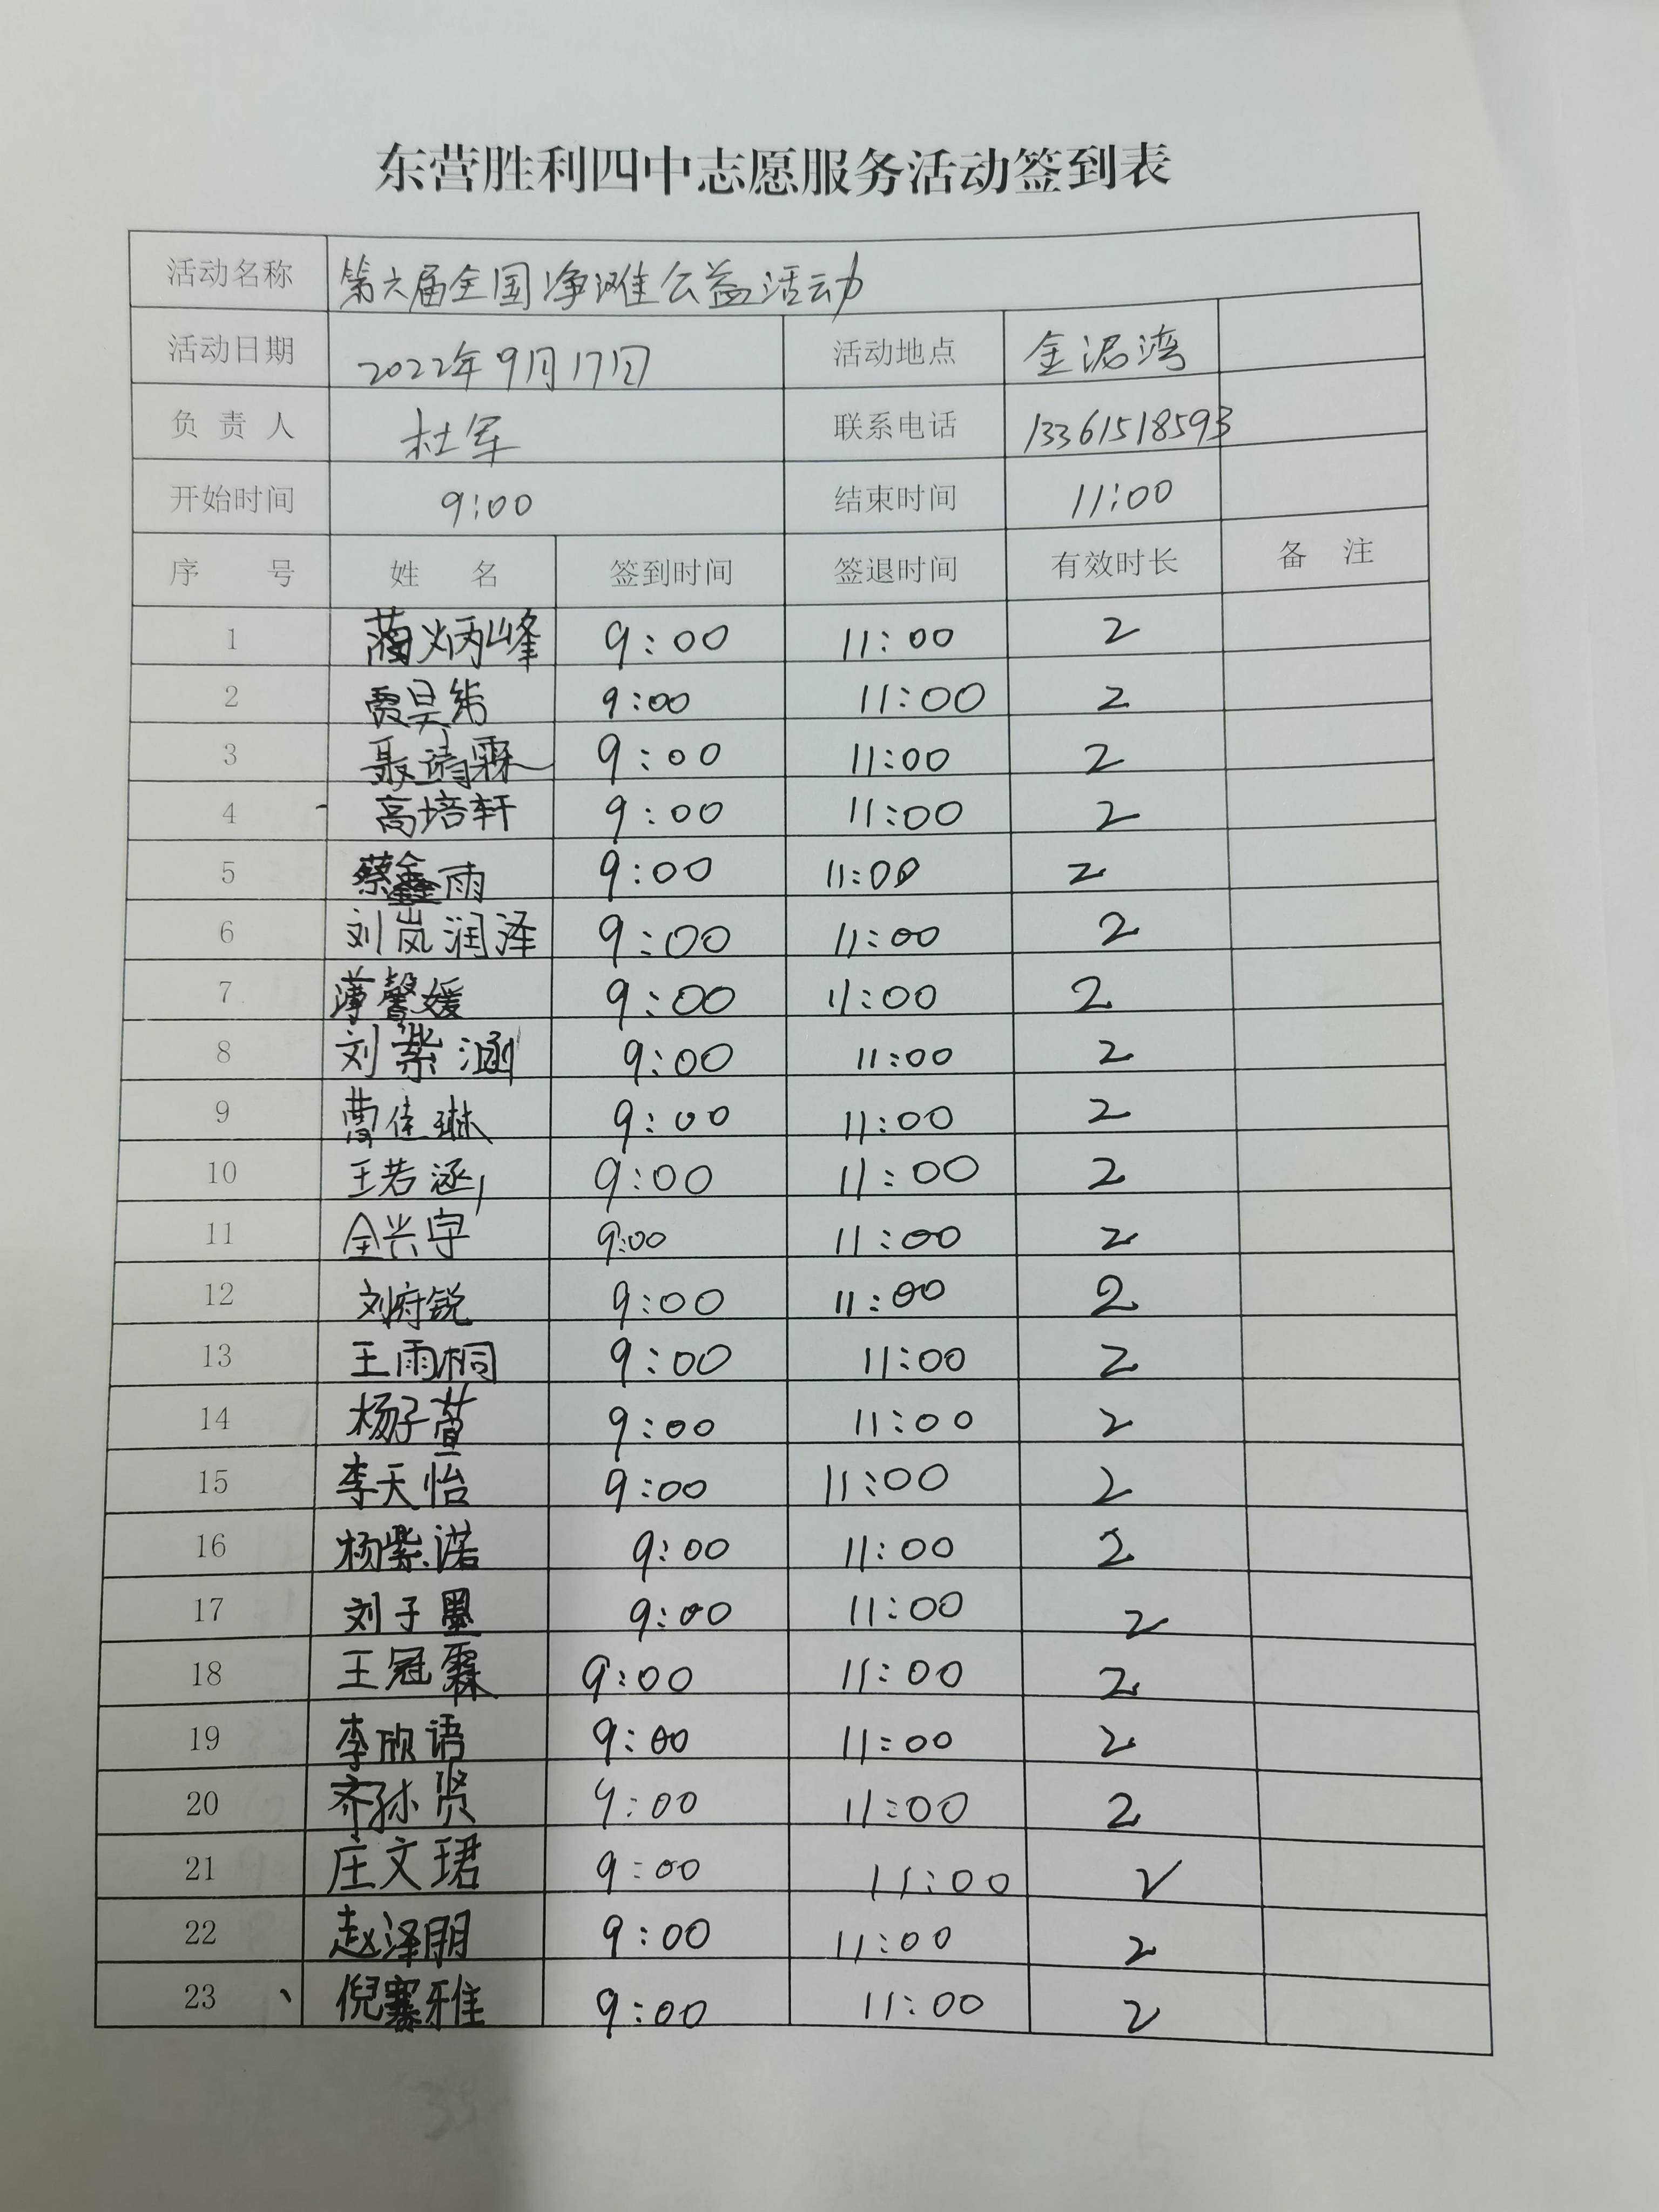 东营胜利四中志愿服务活动签到表
活动名称 第六届全国净滩公益活动
活动日期 2022年9月17日 活动地点 金泥湾
负责人 杜军 联系电话 13361518593
开始时间 9:00 结束时间 11:00
序号 姓名 签到时间 签退时间 有效时长 备注
1 炳峰 9:00 11:00 2
2 9:00 11:00 2
3 聂靖霖 9:00 11:00 2
4 高培轩 9:00 11:00 2
5 蔡鑫雨 9:00 11:00 2
6 刘岚润泽 9:00 11:00 2
7 薄馨媛 9:00 11:00 2
8 刘紫涵 9:00 11:00 2
9 曹佳琳 9:00 11:00 2
10 王若涵 9:00 11:00 2
11 全兴宇 9:00 11:00 2
12 刘府锐 9:00 11:00 2
13 王雨桐 9:00 11:00 2
14 杨子萱 9:00 11:00 2
15 李天怡 9:00 11:00 2
16 杨紫诺 9:00 11:00 2
17 刘子墨 9:00 11:00 2
18 王冠霖 9:00 11:00 2
19 李欣语 9:00 11:00 2
20 齐孙贤 9:00 11:00 2
21 庄文珺 9:00 11:00 2
22 赵泽朋 9:00 11:00 2
23 倪赛雅 9:00 11:00 2